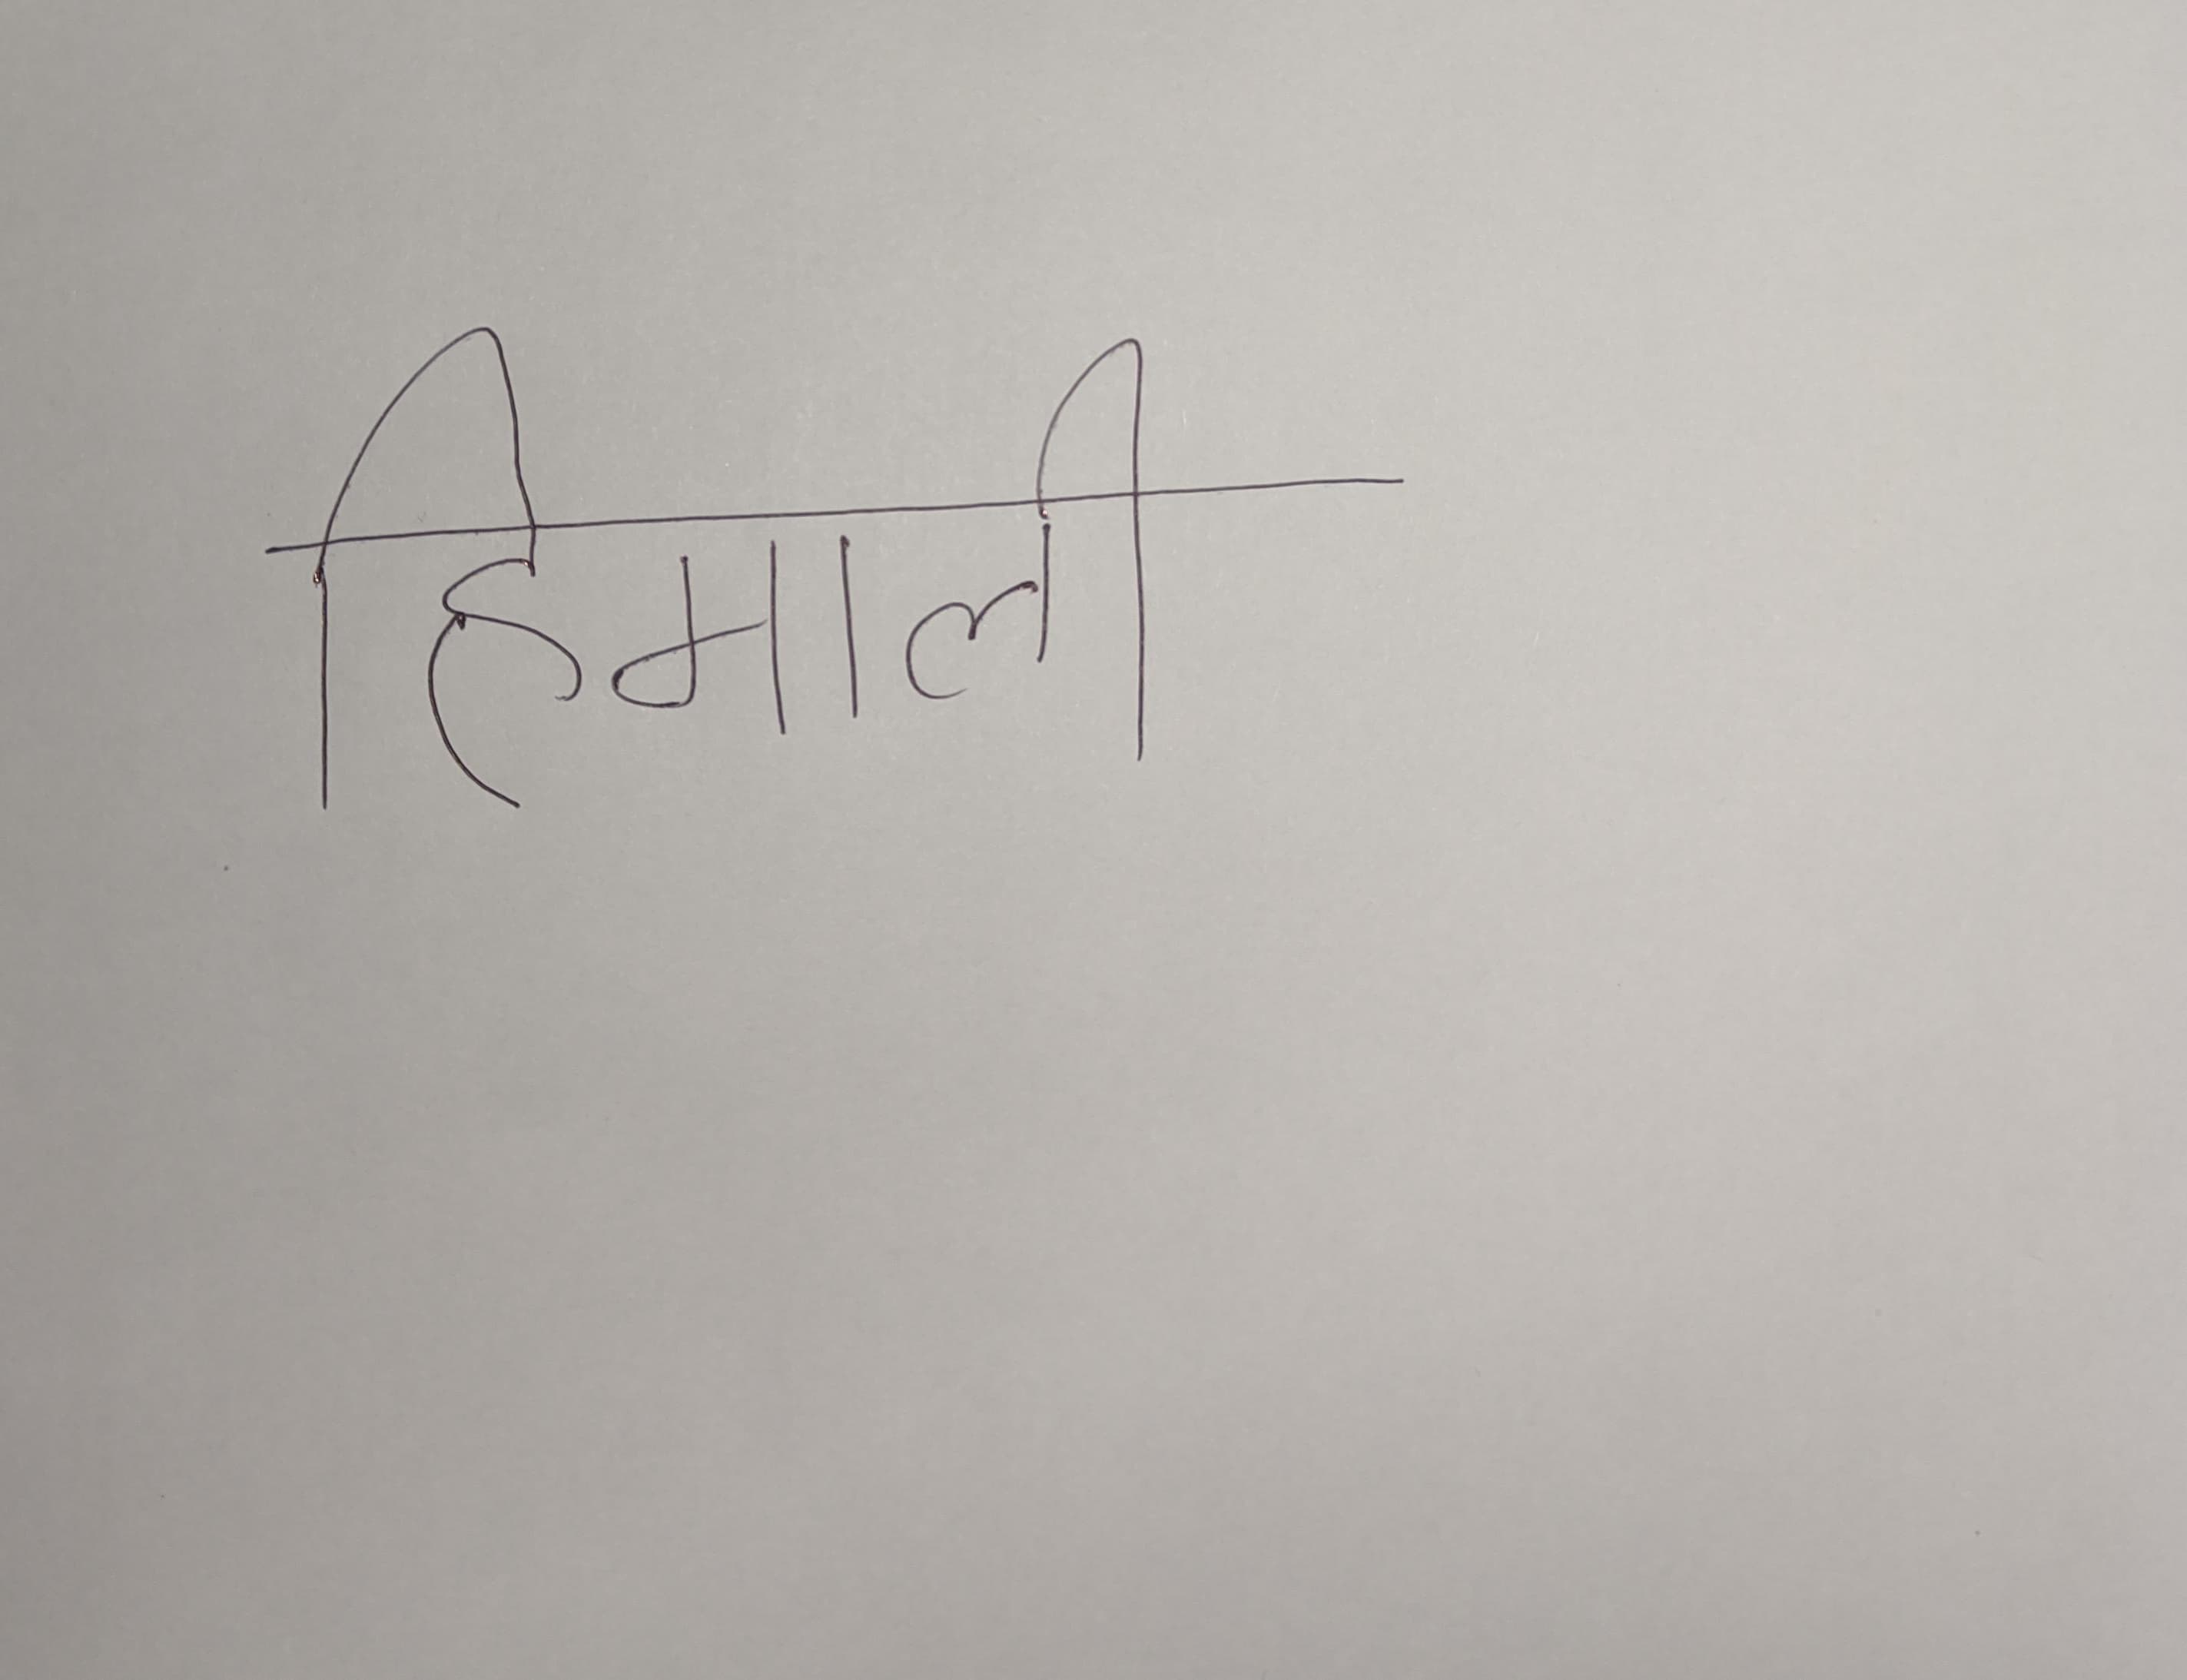 हिमाली